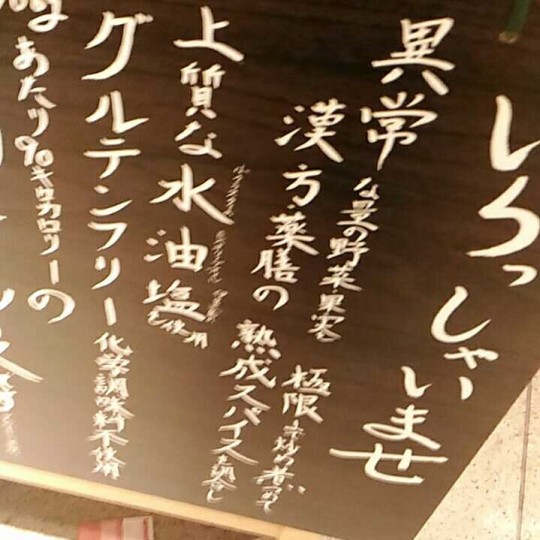 いらっしゃいませ
異常な量の野菜・果実
極限まで炒め煮つめて
漢方・薬膳の熟成スパイスを調合し
上質な水油塩を使用
グルテンフリー化学調味料不使用
あたり90キロカロリーの